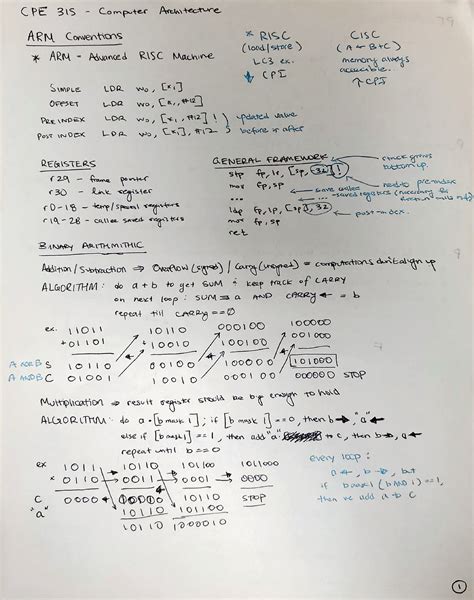 CPE 315 - Computer Architecture
ARM Conventions
* ARM - Advanced RISC Machine
* RISC
(load/store)
LC3 ex.
↓ CPI
CISC
(A ← B+C)
memory always
accessible.
↑ CPI
SIMPLE LDR w0, [x1]
OFFSET LDR w0, [x1, #12]
PRE INDEX LDR w0, [x1, #12]! updated value
POST INDEX LDR w0, [x1], #12 before or after
REGISTERS
r29 - frame pointer
r30 - link register
r0-18 - temp/special registers
r19-28 - callee saved registers
GENERAL FRAMEWORK
stack grows
bottom up.
stp fp, lr, [sp, 32]!
mov fp, sp
need to pre-index
... save callee
saved registers (necessary for
...
ldp fp, lr, [sp], 32
post-index.
mov fp, sp
ret
BINARY ARITHMITHIC
Addition/Subtraction ⇒ Overflow (signed) / Carry (unsigned) =
ALGORITHM: do a + b to get SUM + keep track of CARRY
on next loop: SUM ⇒ a AND CARRY ← = b
repeat till CARRY == 0
ex. 10111 10110 000100 100000
+01101
S 11010
A AND B C 01001 000000 STOP
101000
Multiplication ⇒ result register should be big enough to hold
ALGORITHM: do a * [b mask 1]; if [b mask 1] == 0, then b →, "a" ←
else if [b mask 1] == 1, then add "a" to c, then b →, a ←
repeat until b == 0
ex 1011 10110 101100 1011000
× 0110 0011 0001 0000
C 0000 10110 STOP
"a" 10110 101100
10110 1000010
every loop:
a ←, b →, but
if b mask 1 (b AND 1) == 1,
then we add a to C
1